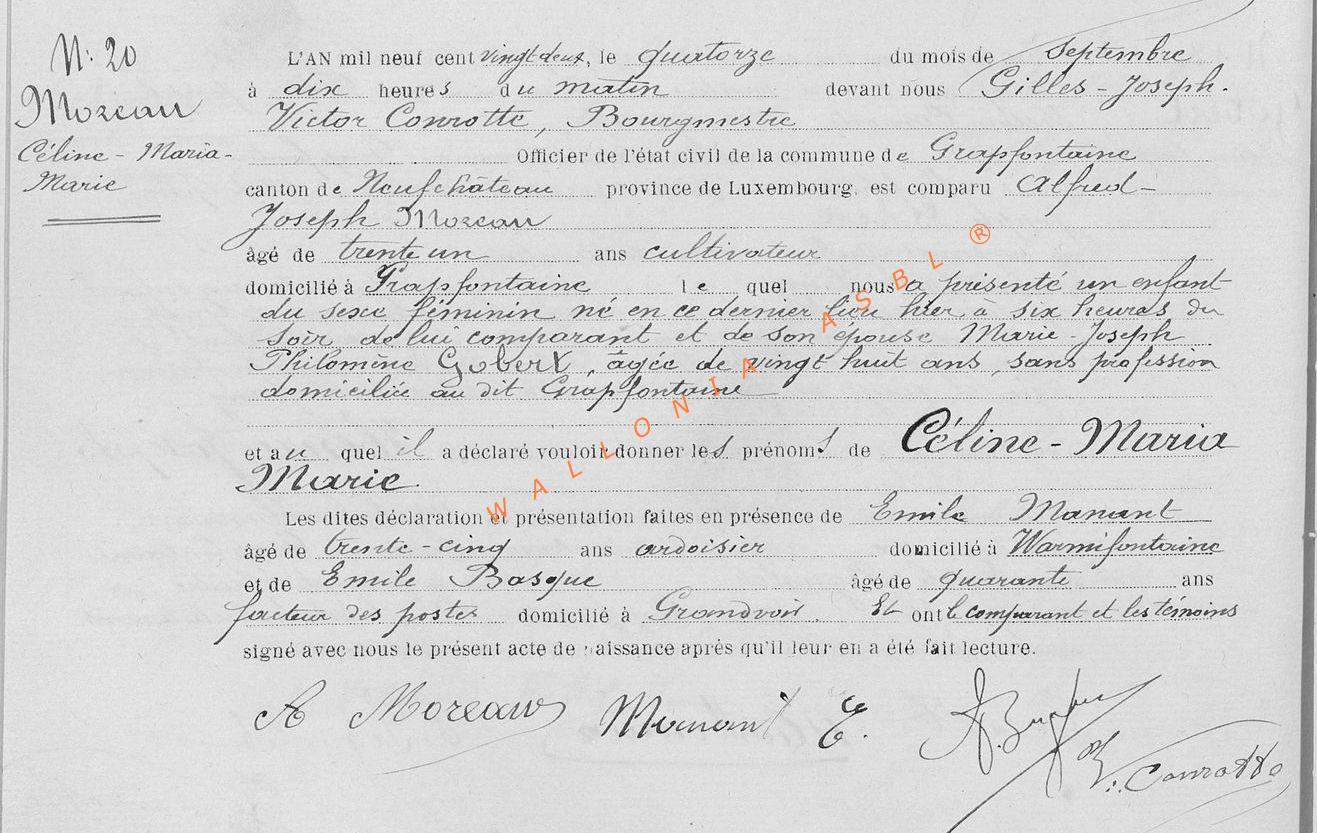 N: 20
Moreau
Céline - Maria -
Marie
L'AN mil neuf cent vingt deux, le quatorze du mois de Septembre
à dix heures du matin devant nous Gilles - Joseph.
Victor Conrotte, Bourgmestre
Officier de l'état civil de la commune de Grapfontaine
canton de Neufchâteau province de Luxembourg, est comparu Alfred -
Joseph Moreau
âgé de trente un ans cultivateur
domicilié à Grapfontaine le quel nous a présenté un enfant
du sexe féminin né en ce dernier lieu hier à six heures du
soir, de lui comparant et de son épouse Marie - Joseph
Philomène Gobert, âgée de vingt huit ans, sans profession
domiciliée au dit Grapfontaine
et au quel il a déclaré vouloir donner les prénoms de Céline - Maria
Marie.
Les dites déclaration et présentation faites en présence de Emile Manant
âgé de trente - cinq ans ardoisier domicilié à Warmifontaine
et de Emile Basque âgé de quarante ans
facteur des postes domicilié à Grandvoir. Et ont le comparant et les témoins
signé avec nous le présent acte de naissance après qu'il leur en a été fait lecture.
A Moreau Manant E.
V. Conrotte
WALLONIA ASBL ®